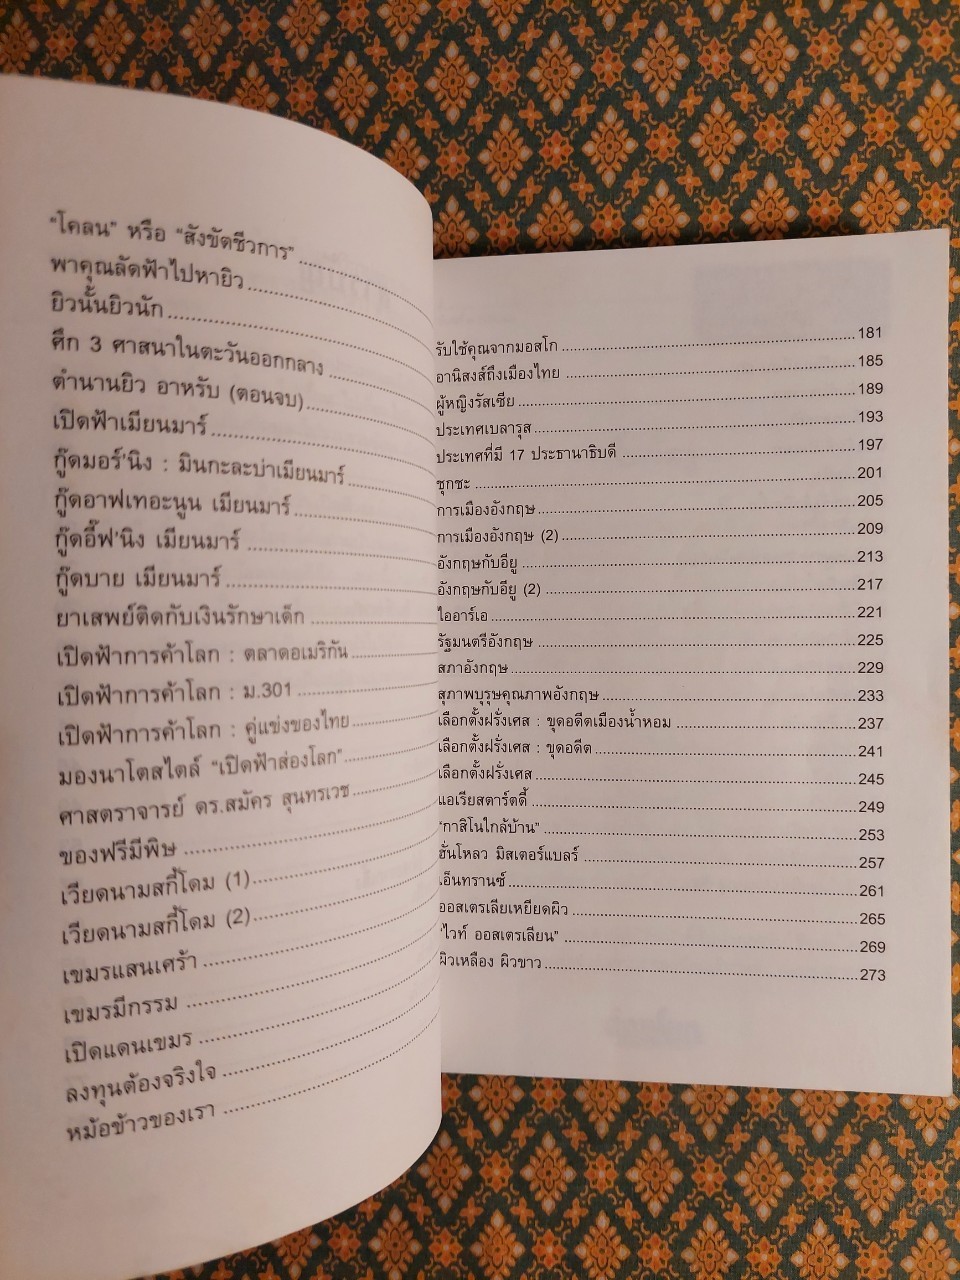 "โคลน" หรือ "สังขัดชีวการ"
พาคุณลัดฟ้าไปหายิว
ยิวนั้นยิวนัก
ศึก 3 ศาสนาในตะวันออกกลาง
ตำนานยิว อาหรับ (ตอนจบ)
เปิดฟ้าเมียนมาร์
กู๊ดมอร์'นิง : มินกะละบ่าเมียนมาร์
กู๊ดอาฟเทอะนูน เมียนมาร์
กู๊ดอี๊ฟ'นิง เมียนมาร์
กู๊ดบาย เมียนมาร์
ยาเสพย์ติดกับเงินรักษาเด็ก
เปิดฟ้าการค้าโลก : ตลาดอเมริกัน
เปิดฟ้าการค้าโลก : ม.301
เปิดฟ้าการค้าโลก : คู่แข่งของไทย
มองนาโตสไตล์ "เปิดฟ้าส่องโลก"
ศาสตราจารย์ ดร.สมัคร สุนทรเวช
ของฟรีมีพิษ
เวียดนามสกี้โดม (1)
เวียดนามสกี้โดม (2)
เขมรแสนเศร้า
เขมรมีกรรม
เปิดแดนเขมร
ลงทุนต้องจริงใจ
หม้อข้าวของเรา
รับใช้คุณจากมอสโก 181
อานิสงส์ถึงเมืองไทย 185
ผู้หญิงรัสเซีย 189
ประเทศเบลารุส 193
ประเทศที่มี 17 ประธานาธิบดี 197
ชุกชะ 201
การเมืองอังกฤษ 205
การเมืองอังกฤษ (2) 209
อังกฤษกับอียู 213
อังกฤษกับอียู (2) 217
ไออาร์เอ 221
รัฐมนตรีอังกฤษ 225
สภาอังกฤษ 229
สุภาพบุรุษคุณภาพอังกฤษ 233
เลือกตั้งฝรั่งเศส : ขุดอดีตเมืองน้ำหอม 237
เลือกตั้งฝรั่งเศส : ขุดอดีต 241
เลือกตั้งฝรั่งเศส 245
แอเรียสตาร์ตดี้ 249
"กาสิโนใกล้บ้าน" 253
ฮั่นโหลว มิสเตอร์แบลร์ 257
เอ็นทรานซ์ 261
ออสเตรเลียเหยียดผิว 265
"ไวท์ ออสเตรเลียน" 269
ผิวเหลือง ผิวขาว 273